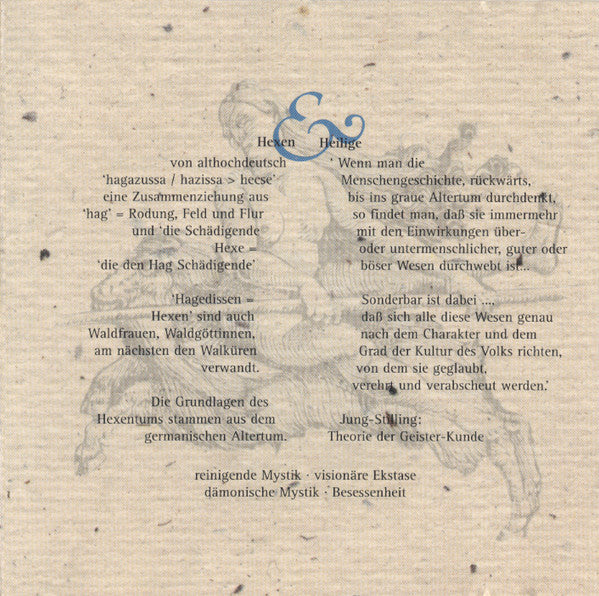 Hexen & Heilige
von althochdeutsch
'hagazussa / hazissa > hecse'
eine Zusammenziehung aus
'hag' = Rodung, Feld und Flur
und 'die Schädigende
Hexe =
'die den Hag Schädigende'
'Hagedissen =
Hexen' sind auch
Waldfrauen, Waldgöttinnen,
am nächsten den Walküren
verwandt.
Die Grundlagen des
Hexentums stammen aus dem
germanischen Altertum.
' Wenn man die
Menschengeschichte, rückwärts,
bis ins graue Altertum durchdenkt,
so findet man, daß sie immermehr
mit den Einwirkungen über-
oder untermenschlicher, guter oder
böser Wesen durchwebt ist...
Sonderbar ist dabei ...,
daß sich alle diese Wesen genau
nach dem Charakter und dem
Grad der Kultur des Volks richten,
von dem sie geglaubt,
verehrt und verabscheut werden.'
Jung-Stilling:
Theorie der Geister-Kunde
reinigende Mystik · visionäre Ekstase
dämonische Mystik · Besessenheit